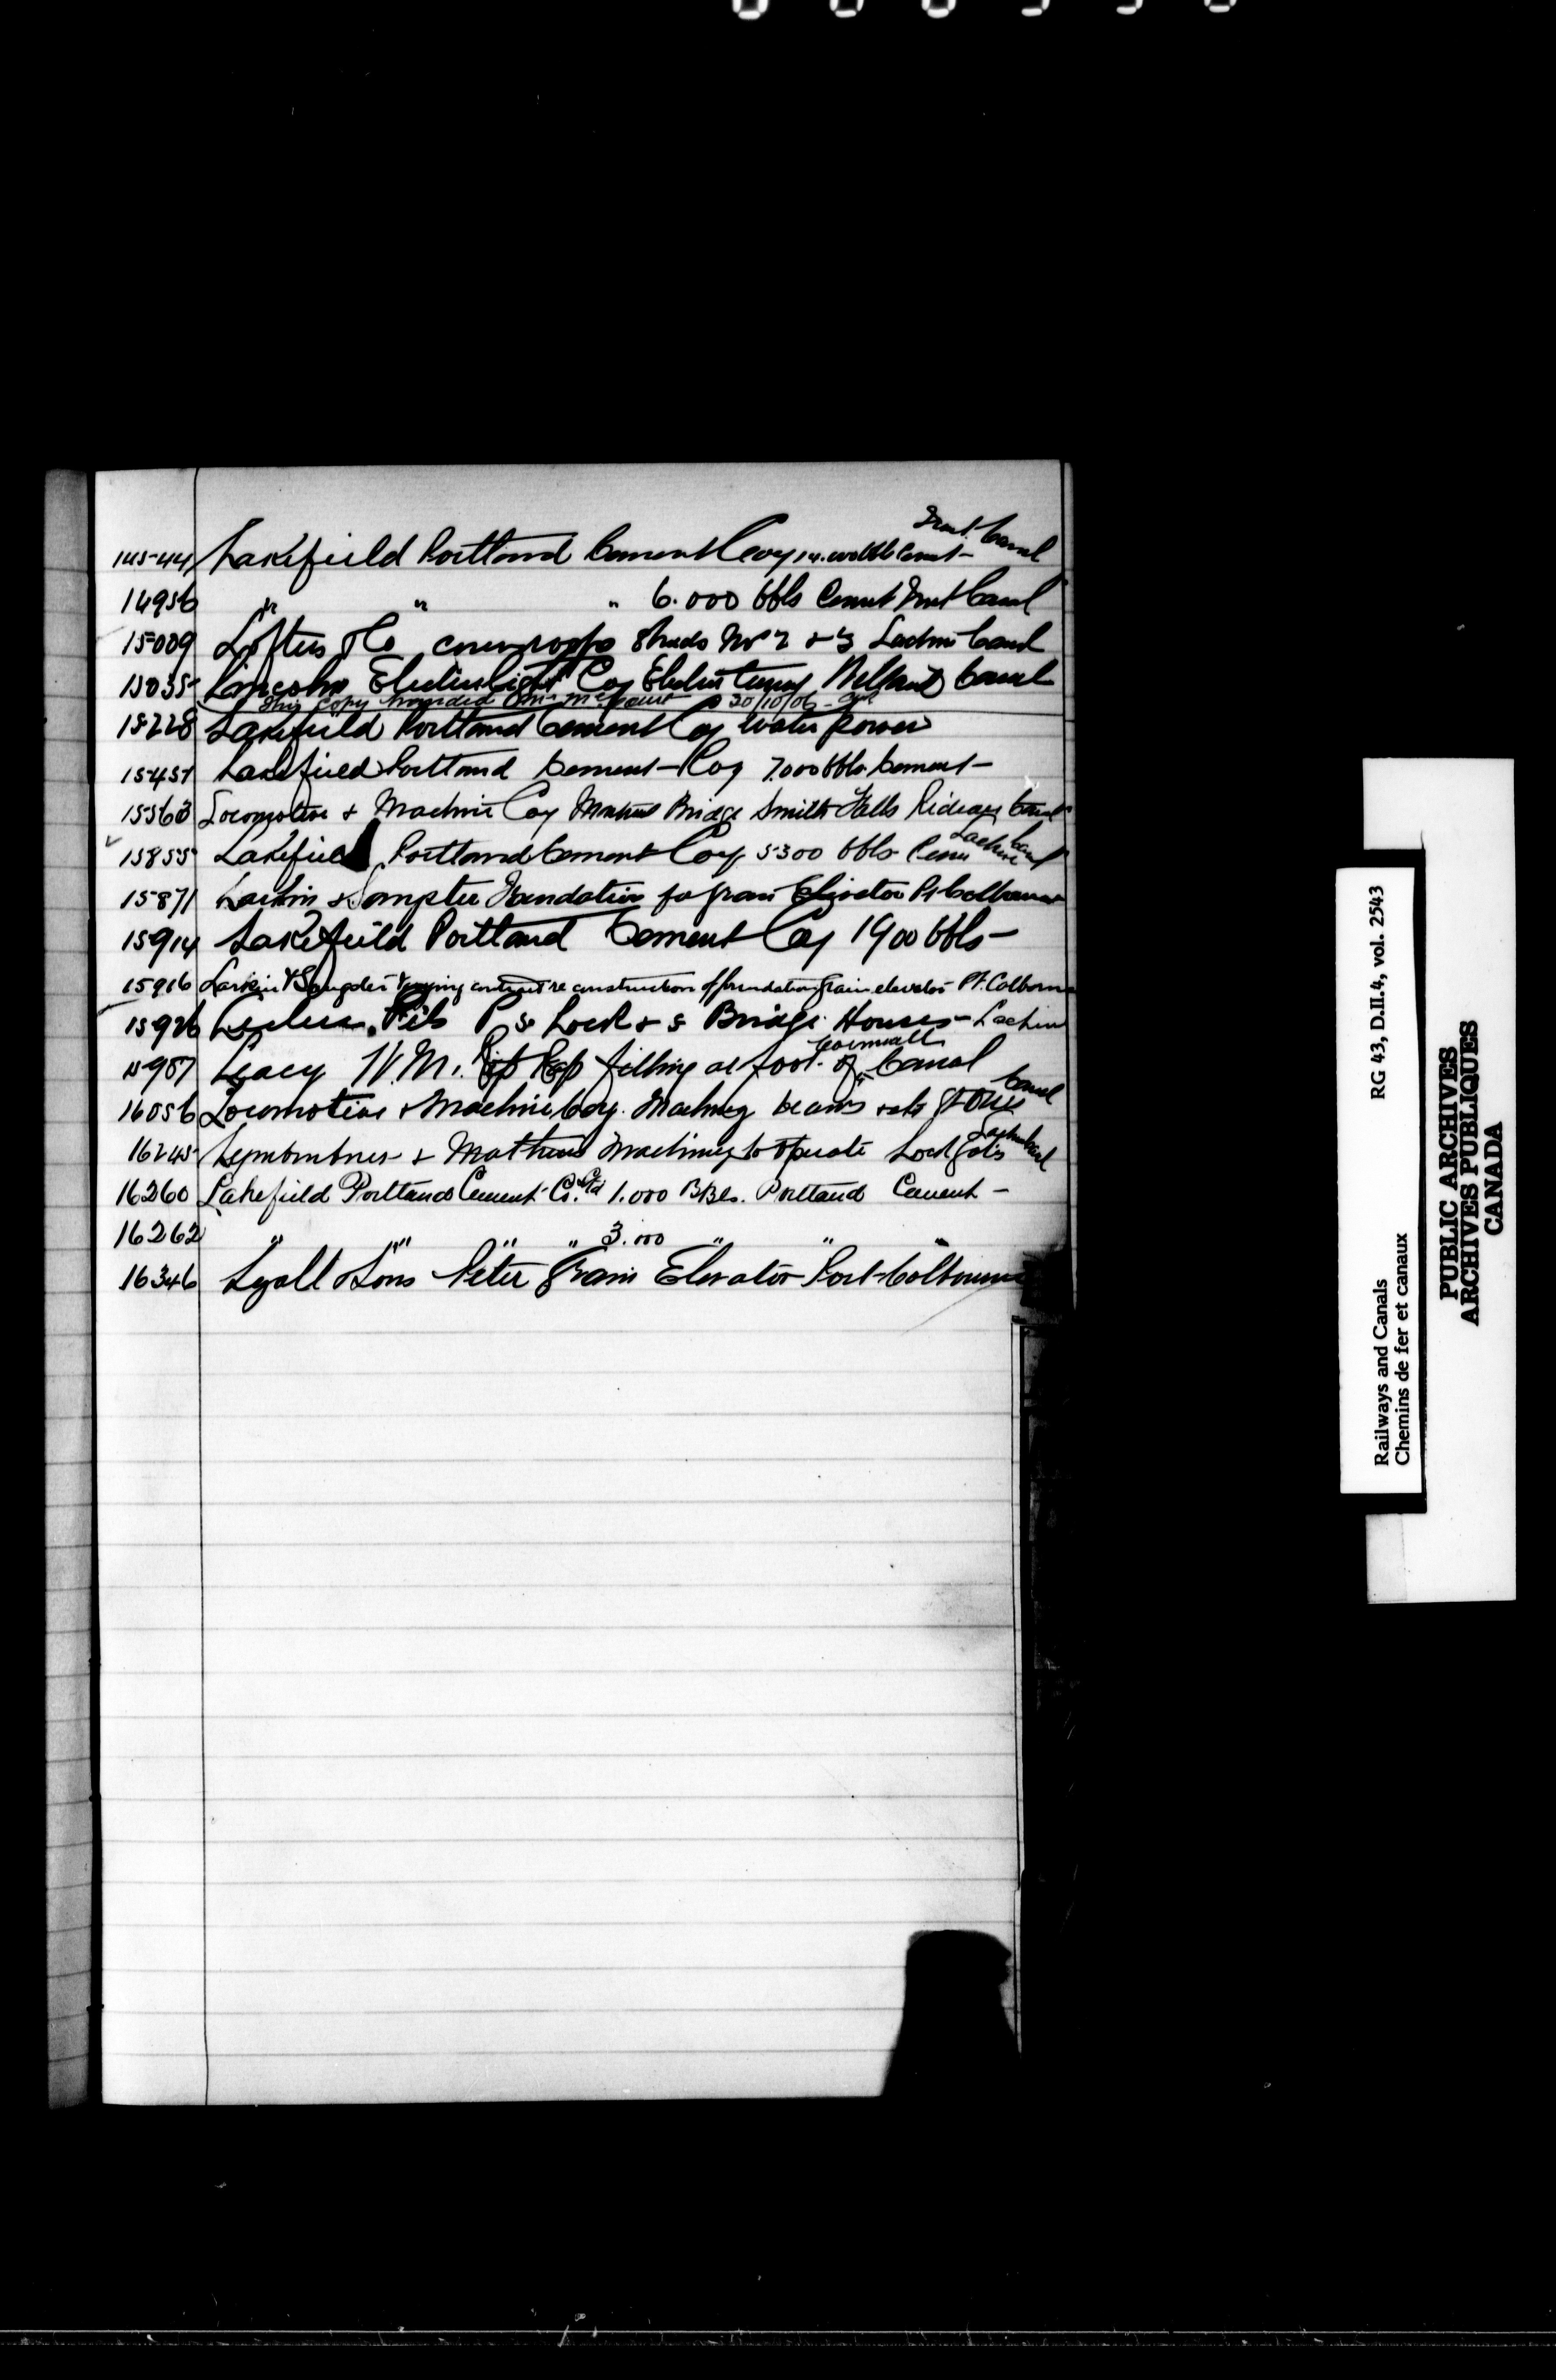 14544 Lakefield Portland Cement Coy 14.000 bbls Cement - Trent Canal
14956 " " " 6.000 bbls Cement Trent Canal
15009 Loftus & Co roofs Sheds No 2 & 3 Lachine Canal
15035 Lincoln Electric Light Coy Electric Welland Canal
This copy handed Mr McCourt 20/10/06
15228 Lakefield Portland Cement Coy Water power
15451 Lakefield Portland Cement - Coy 7.000 bbls Cement -
15563 Locomotive & Machine Coy Bridge Smiths Falls Rideau Canal
15855 Lakefield Portland Cement Coy 5300 bbls Cem Lachine Canal
15871 Larkin & Sangster Foundation for grain Elevator Pt Colborne
15914 Lakefield Portland Cement Coy 1900 bbls -
15916 Larkin & Sangster varying contract re construction of foundation grain elevator Pt. Colborne
15926 Leclerc, Fils P 5 Lock & 5 Bridge Houses - Lachine
15987 Leacy W.M. Rip Rap filling at foot of Cornwall Canal
16056 Locomotive & Machine Coy. beams &c Canal
16245 & Mathews Machinery to operate Lock Gates Lachine Canal
16260 Lakefield Portland Cement Co. Ltd 1.000 BBls. Portland Cement -
16262 " " " " 3.000 " " "
16346 Lyall & Sons Peter Grain Elevator Port Colborne
RG 43, D.II.4, vol. 2543
Railways and Canals
Chemins de fer et canaux
PUBLIC ARCHIVES
ARCHIVES PUBLIQUES
CANADA